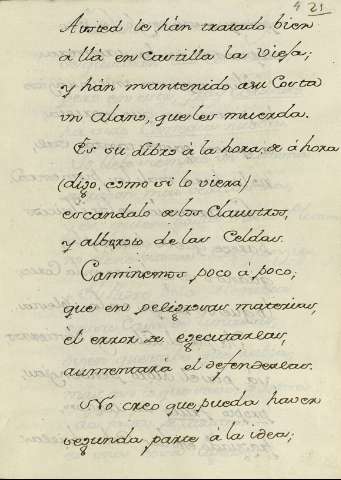 4 21
Austed le hán tratado bien
á llá en Castilla la Vieja;
y hán mantenido asu Costa
un Alano, que les muerda.
Es su Libro á la hora, de á hora
(digo, como si lo viera)
escandalo de los Claustros,
y alboroto de las Celdas.
Caminemos poco á poco;
que en peligrosas materias,
el error de egecutarlas,
aumentará el defenderlas.
No creo que pueda haver
segunda parte á la idea;